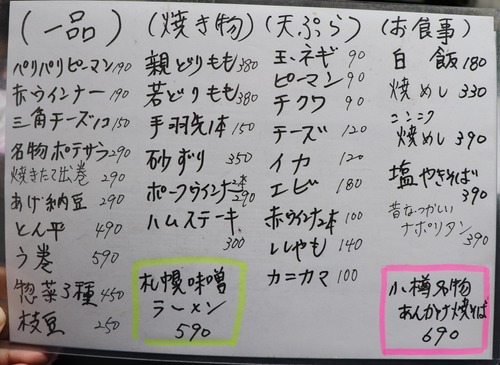 (一品)
パリパリピーマン 190
赤ウインナー 190
三角チーズ1コ 150
名物ポテサラ 290
焼きたて出巻 290
あげ納豆 290
とん平 490
う巻 590
惣菜3種 450
枝豆 250
(焼き物)
親どりもも 380
若どりもも 380
手羽先1本 150
砂ずり 350
ポークウインナー2本 290
ハムステーキ 300
札幌味噌
ラーメン
590
(天ぷら)
玉ネギ 90
ピーマン 90
チクワ 90
チーズ 120
イカ 120
エビ 180
赤ウインナ2本 100
ししゃも 140
カニカマ 100
(お食事)
白飯 180
焼めし 330
ニンニク
焼めし 390
塩やきそば
390
昔なつかしい
ナポリタン
390
小樽名物
あんかけ焼そば
690